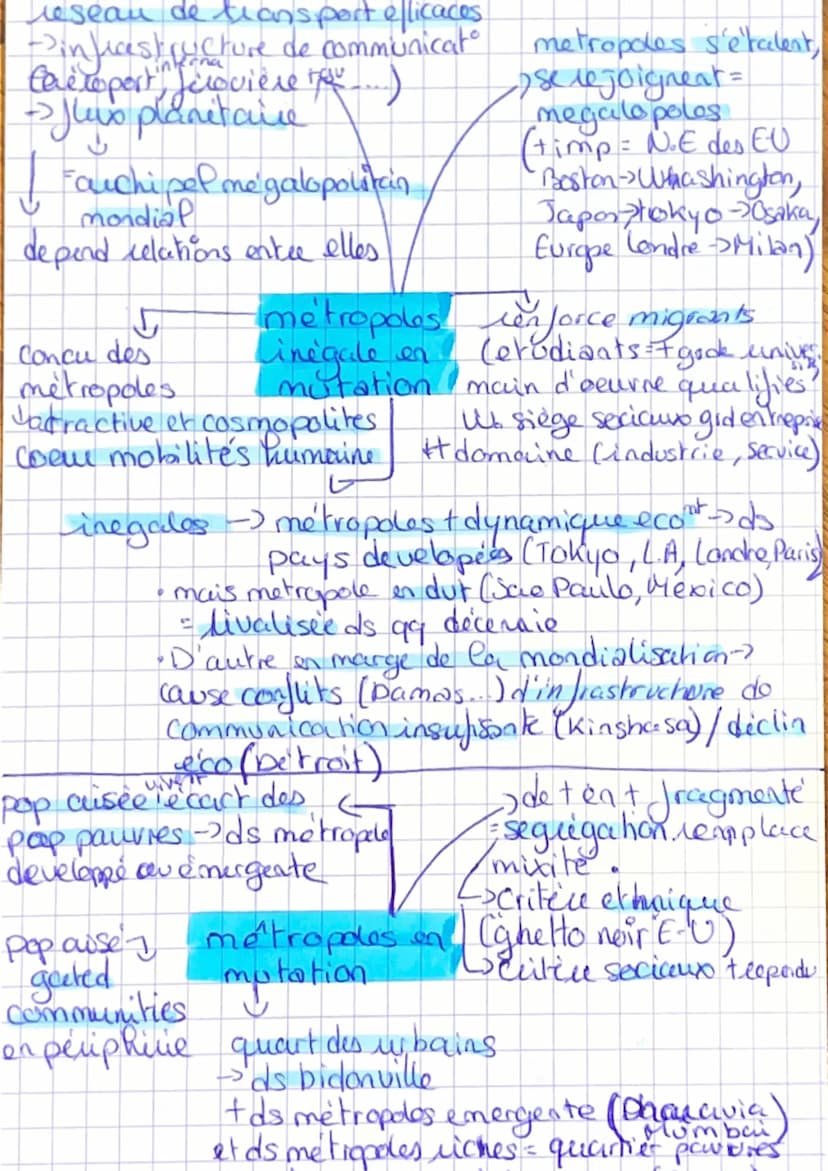 reseau de transport efficaces
->infrastructure de communicat°
interna
(aéroport, férovière ...)
-> flux planétaire
= archipel mégalopolitain
mondial
depend relations entre elles
metropoles s'étalent,
se rejoignent =
megalopoles
(+ imp = N.E des EU
Boston->Whashington,
Japon->tokyo->Osaka,
Europe Londre->Milan)
métropoles
inégale en
mutation
concu des
métropoles
attractive et cosmopolites
coeur mobilités humaine
renforce migrants
(etudiants = + gdek univers
main d'oeuvre qualifiés
siège sociaux grd entreprise
tt domaine (industrie, service)
inegales -> métropoles + dynamique eco^mt -> ds
pays developées (Tokyo, L.A, Londre, Paris)
• mais metropole en dvt (Sao Paulo, México)
= rivalisée ds qq décenie
• D'autre en marge de la mondialisation->
cause conflits (Damas...) d'infrastructure de
communication insufisante (Kinshasa) / déclin
eco (Détroit)
pop aisée vivent écart des
pop pauvres -> ds métropole
developpé ou émergente
-> de + en + fragmenté
= ségrégation remplace
mixité.
-> critère ethnique
(ghetto noir E-U)
-> critère sociaux + repandu
métropoles en
mutation
pop aisé
gated
communities
en périphirie
quart des urbains
-> ds bidonville
+ ds métropoles emergente (Dharavia)
Mumbai
et ds métropoles riches = quartier pauvres